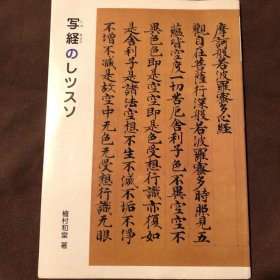 写経のレッスン
植村和堂 著
摩訶般若波羅蜜多心經
觀自在菩薩行深般若波羅蜜多時照見五
蘊皆空度一切苦厄舍利子色不異空空不
異色色即是空空即是色受想行識亦復如
是舍利子是諸法空想不生不滅不垢不淨
不增不減是故空中无色无受想行識无眼